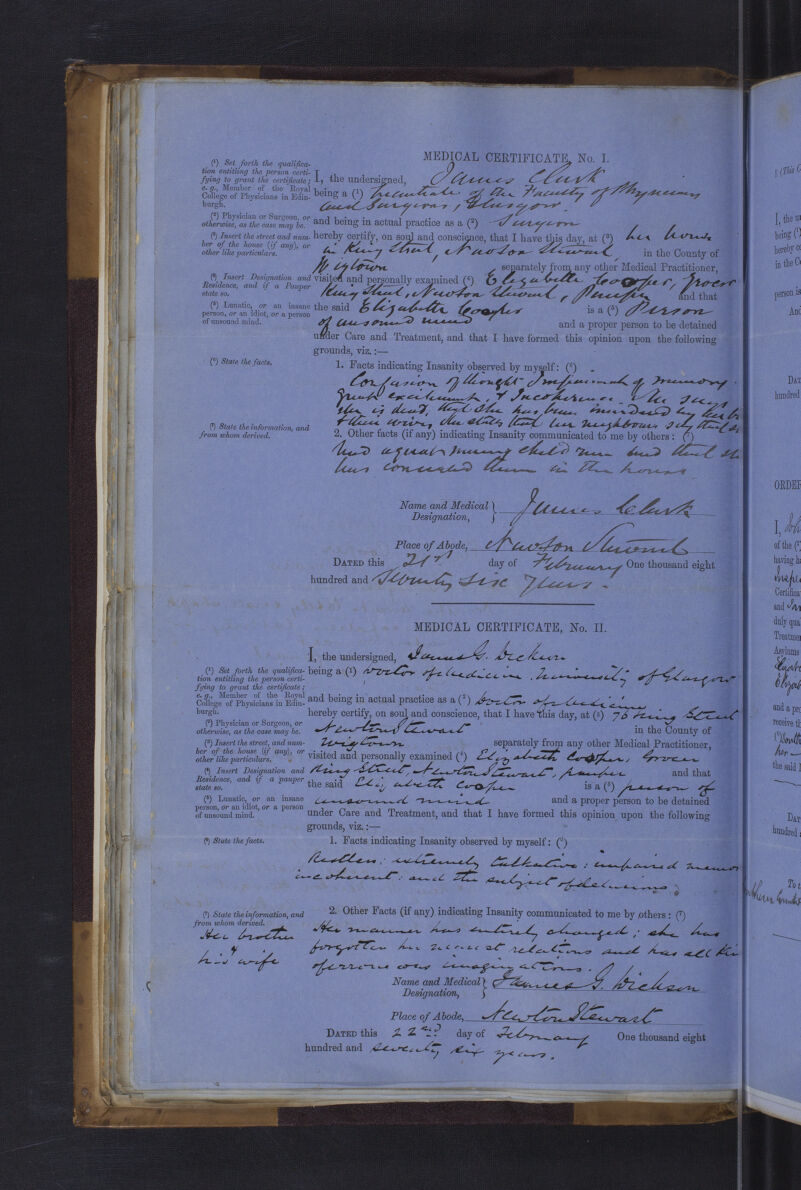 MEDICAL CERTIFICATE, No. I.
(¹) Set forth the qualifica-
tion entitling the person certi-
fying to grant the certificate;
e. g., Member of the Royal
College of Physicians in Edin-
burgh.
(²) Physician or Surgeon, or
otherwise, as the case may be.
(³) Insert the street and num-
ber of the house (if any), or
other like particulars.
(⁴) Insert Designation and
Residence, and if a Pauper
state so.
(⁵) Lunatic, or an insane
person, or an idiot, or a person
of unsound mind.
(⁶) State the facts.
(⁷) State the information, and
from whom derived.
I, the undersigned, James Clark
being a (¹) Licentiate of the Faculty of Physicians
and Surgeons, Glasgow
and being in actual practice as a (²) Surgeon
hereby certify, on soul and conscience, that I have this day, at (³) her house
in King Street, Newton Stewart, in the County of
Wigtown separately from any other Medical Practitioner,
visited and personally examined (⁴) Elizabeth Cooper, Grocer
King Street, Newton Stewart, Pauper and that
the said Elizabeth Cooper is a (⁵) Person
of unsound mind and a proper person to be detained
under Care and Treatment, and that I have formed this opinion upon the following
grounds, viz.:—
1. Facts indicating Insanity observed by myself: (⁶)
Confusion of thought Impairment of memory
great excitement, & Incoherence. She says
she is dead, that she has been murdered by her
& their wives, she states that her neighbours say that
2. Other facts (if any) indicating Insanity communicated to me by others: (⁷)
had a great many children and that
has concealed them in the house
Name and Medical Designation, James Clark
Place of Abode, Newton Stewart
DATED this 21st day of February One thousand eight
hundred and Seventy six years.
MEDICAL CERTIFICATE, No. II.
(¹) Set forth the qualifica-
tion entitling the person certi-
fying to grant the certificate;
e. g., Member of the Royal
College of Physicians in Edin-
burgh.
(²) Physician or Surgeon, or
otherwise, as the case may be.
(³) Insert the street, and num-
ber of the house (if any), or
other like particulars.
(⁴) Insert Designation and
Residence, and if a pauper
state so.
(⁵) Lunatic, or an insane
person, or an idiot, or a person
of unsound mind.
(⁶) State the facts.
(⁷) State the information, and
from whom derived.
Her brother
his " wife
I, the undersigned, James G. Dickson
being a (¹) Doctor of Medicine, University of Glasgow
and being in actual practice as a (²) Doctor of Medicine
hereby certify, on soul and conscience, that I have this day, at (³) 76 King Street
Newton Stewart in the County of
Wigtown separately from any other Medical Practitioner,
visited and personally examined (⁴) Elizabeth Cooper, Grocer
King Street, Newton Stewart, pauper and that
the said Elizabeth Cooper is a (⁵) person of
unsound mind and a proper person to be detained
under Care and Treatment, and that I have formed this opinion upon the following
grounds, viz.:—
1. Facts indicating Insanity observed by myself: (⁶)
Restless: extremely talkative: impaired memory
incoherent: and the subject of delusions;
2. Other Facts (if any) indicating Insanity communicated to me by others: (⁷)
Her manner has entirely changed; she has
forgotten her nearest relations and has all kin
of erroneous imaginations.
Name and Medical Designation, James G. Dickson
Place of Abode, Newton Stewart
DATED this 22nd. day of February One thousand eight
hundred and seventy six years.